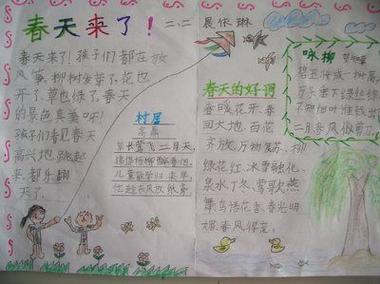 春天来了！
二、二
晨依琳
春天来了！孩子们都在放
风筝，柳树发芽了，花也
开了，草也绿了。春天
的景色真美呀！
孩子们看见春天
高兴地跳起
来，都乐翻
天了。
村居
高鼎
草长莺飞二月天，
拂堤杨柳醉春烟。
儿童散学归来早，
忙趁东风放纸鸢。
春天的好词
春暖花开、春
回大地、百花
齐放、万物复苏、柳
绿花红、冰雪融化、
泉水丁冬、莺歌燕
舞、鸟语花香、春光明
媚、春风得意。
咏柳
碧玉妆成一树高，
万条垂下绿丝绦。
不知细叶谁裁出，
二月春风似剪刀。